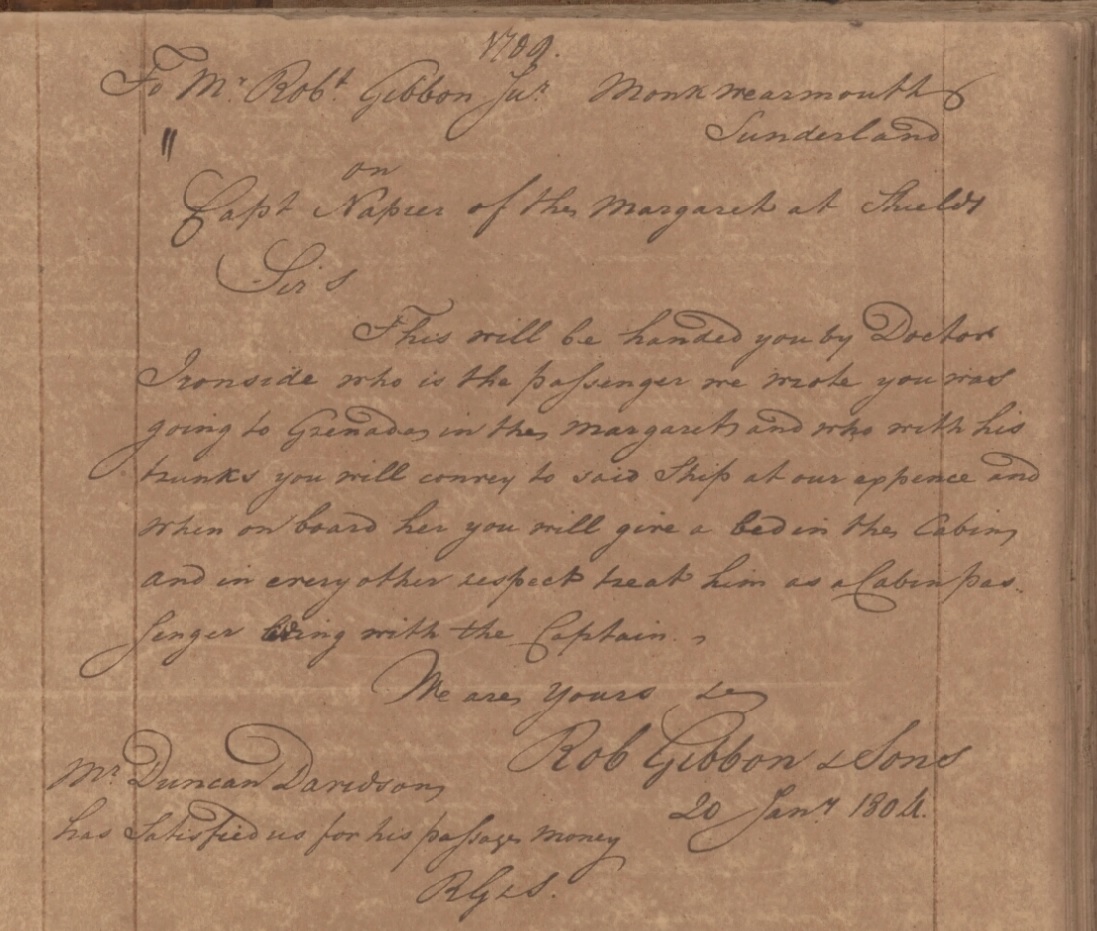 1789.
To Mr. Robt. Gibbon Junr. Monkwearmouth
Sunderland
"
on
Capt Napier of the Margaret at Shields
Sirs
This will be handed you by Doctor
Ironside who is the passenger we wrote you was
going to Grenada in the Margaret and who with his
trunks you will convey to said Ship at our expence and
when on board her you will give a bed in the Cabin,
and in every other respect treat him as a Cabin pas
senger being with the Captain.
We are yours &c
Rob Gibbon & Sons
20 Jany. 1804.
Mr. Duncan Davidson
has Satisfied us for his passage money
RG&S.